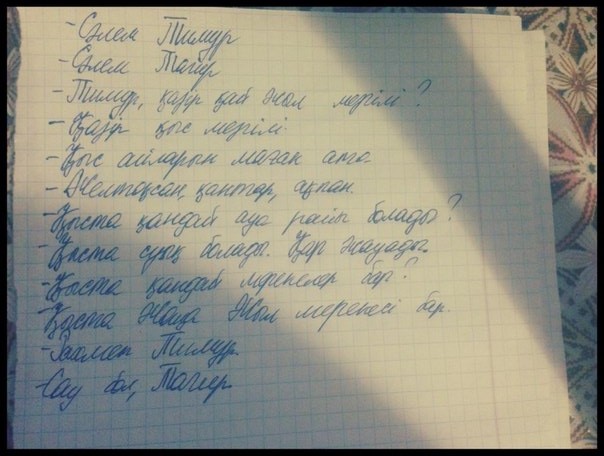 - Сәлем Тимур
- Сәлем Тагир
- Тимур, қазір қай жыл мезгілі?
- Қазір қыс мезгілі.
- Қыс айларын маған ата.
- Желтоқсан, қаңтар, ақпан.
- Қыста қандай ауа райы болады?
- Қыста суық болады. Қар жауады.
- Қыста қандай мерекелер бар?
Қыста Жаңа Жыл мерекесі бар.
- Рахмет Тимур.
- Сау бол, Тагир.